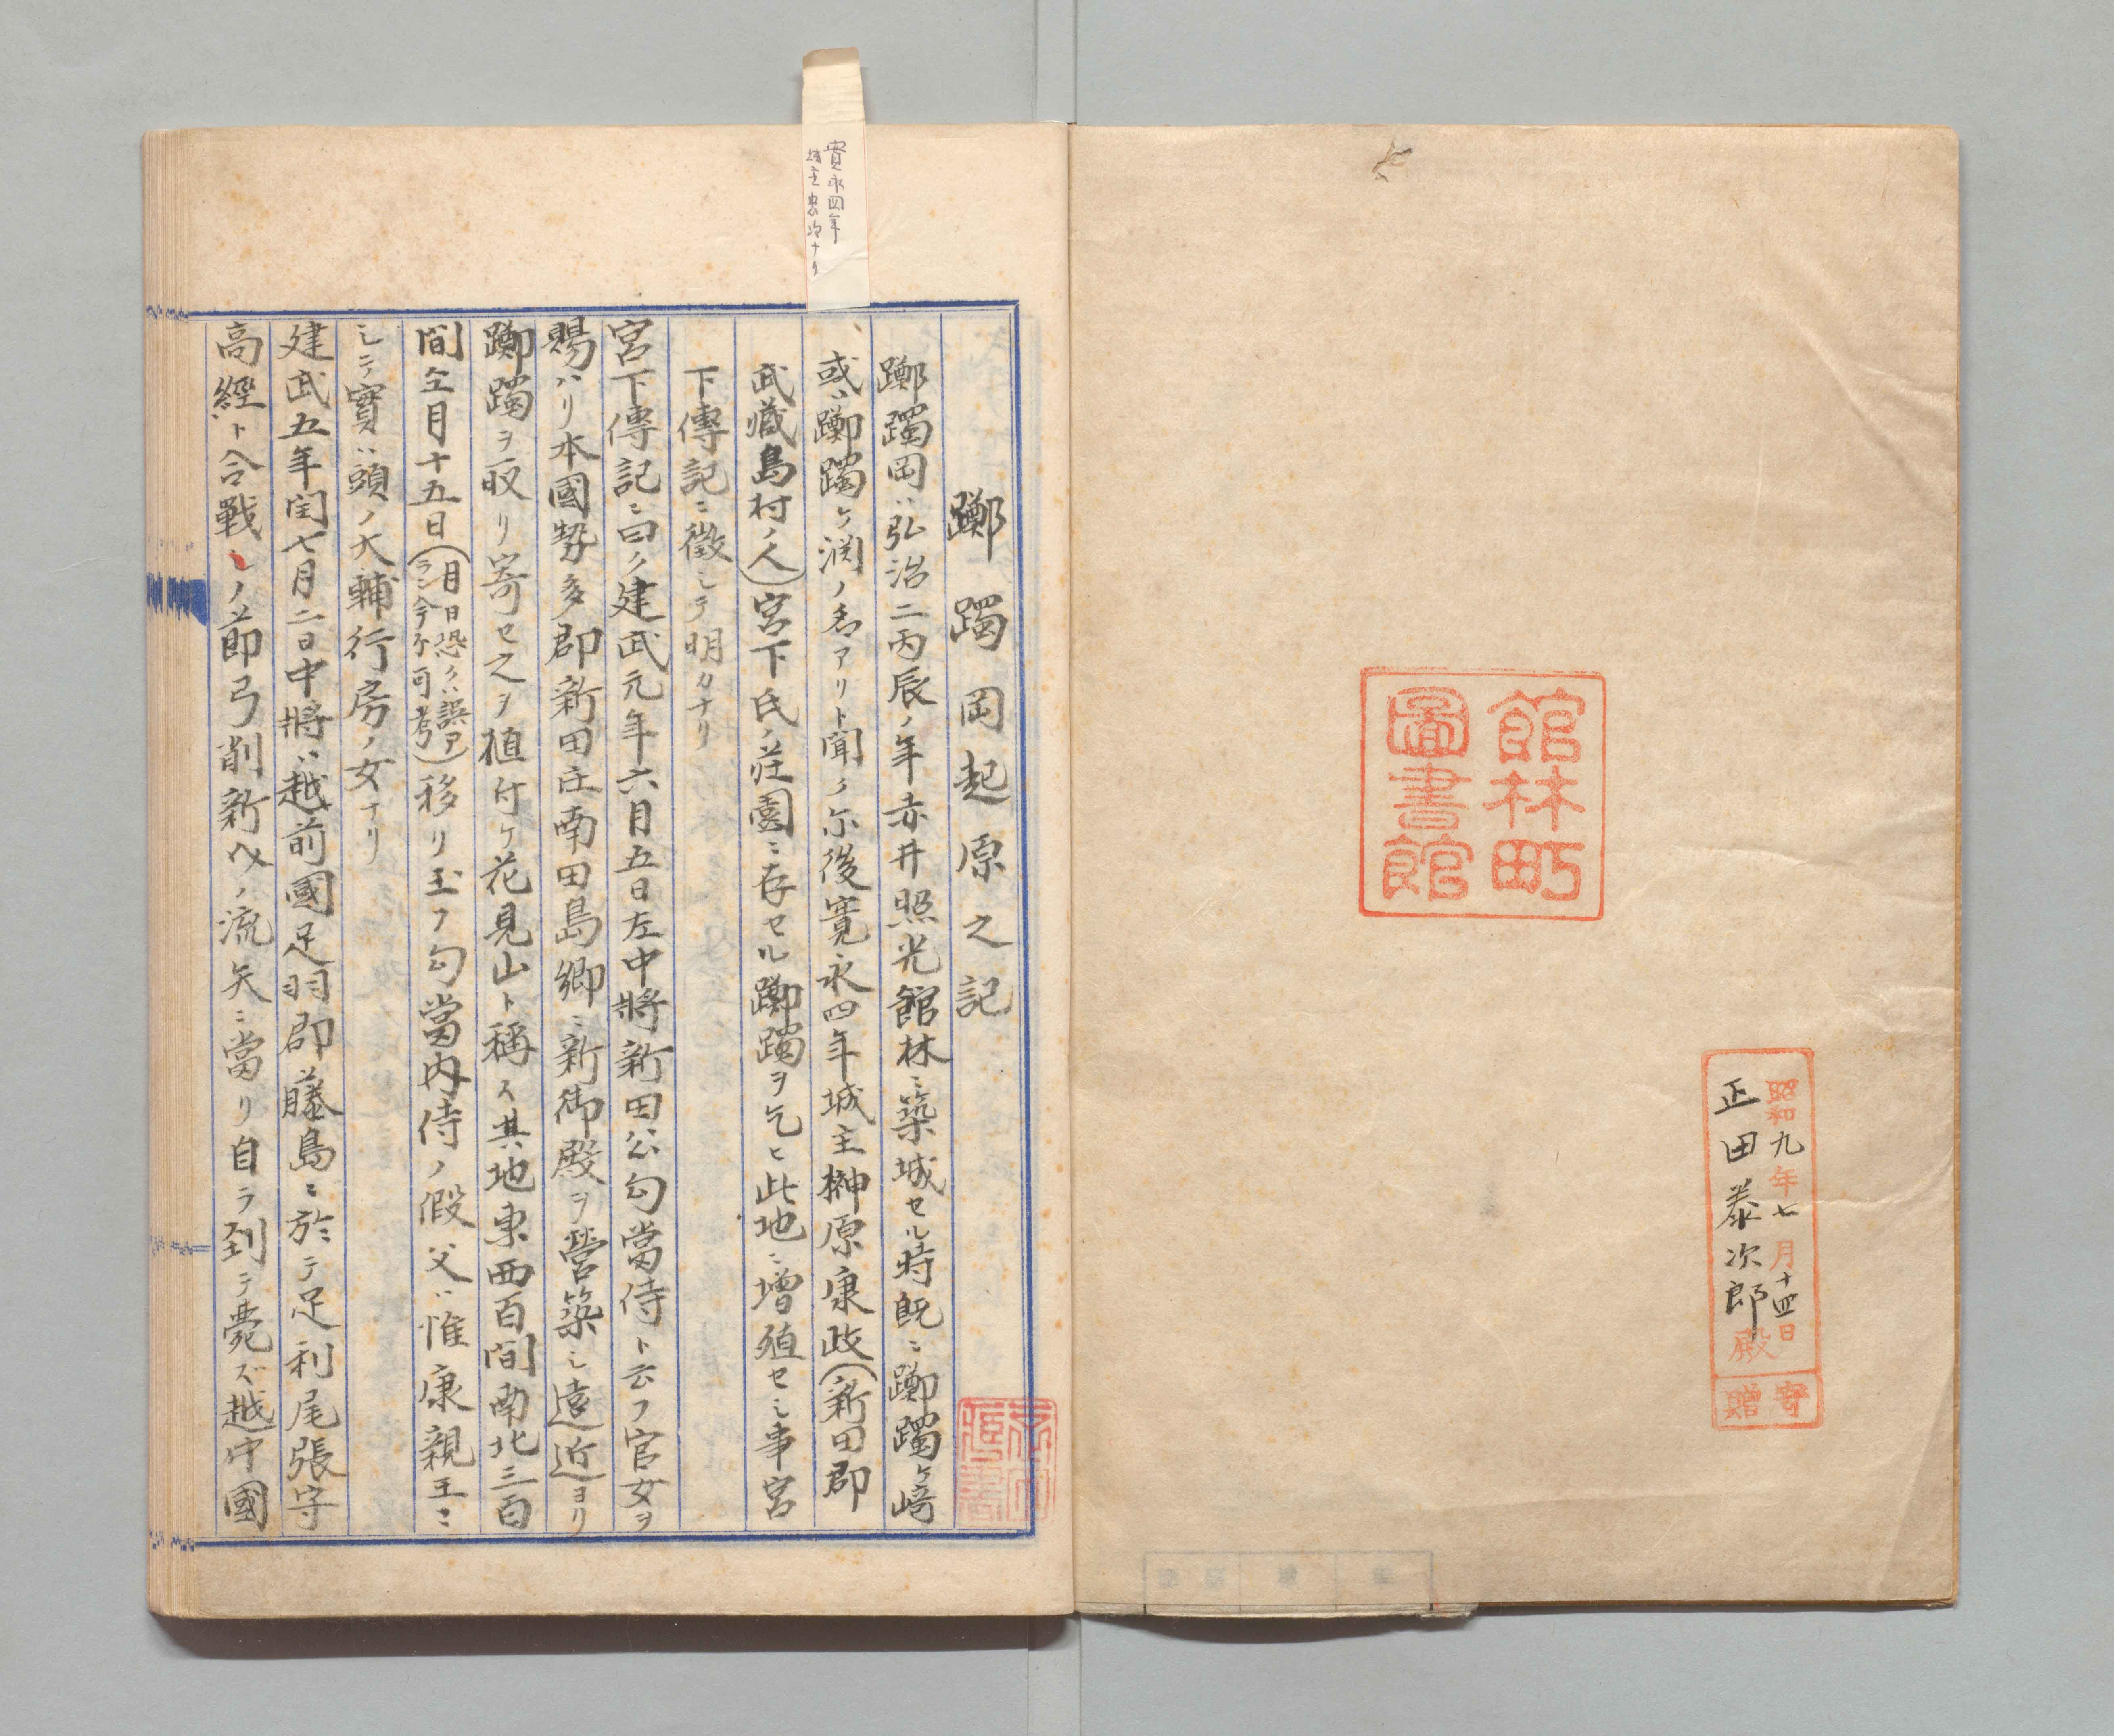 館林町
圖書館
昭和九年七月十四日
正田泰次郎殿
寄贈
寛永四年
城主忠次ナリ
躑躅岡起原之記
躑躅岡ハ弘治二丙辰ノ年赤井照光館林ニ築城セル時既ニ躑躅ケ﨑
或ハ躑躅ケ渕ノ名アリト聞ク尓後寛永四年城主榊原康政(新田郡
武蔵島村ノ人)宮下氏ノ荘園ニ存セル躑躅ヲ乞ヒ此地ニ増殖セシ事宮
下傳記ニ徴シテ明カナリ
宮下傳記ニ曰ク建武元年六月五日左中將新田公勾當侍ト云フ官女ヲ
賜ハリ本國勢多郡新田庄南田島郷ニ新御殿ヲ營築シ遠近ヨリ
躑躅ヲ収リ寄セ之ヲ植付ケ花見山ト稱ス其地東西百間南北三百
間仝月十五日(月日恐クハ誤アラン今不可考)移リ玉フ勾當内侍ノ假父ハ惟康親王ニ
シテ實ハ頭ノ大輔行房ノ女ナリ
建武五年閏七月二日中將ハ越前國足羽郡藤島ニ於テ足利尾張守
高經ト合戰シノ節弓削新ノ流矢ニ當リ自ラ到テ薨ズ越中國